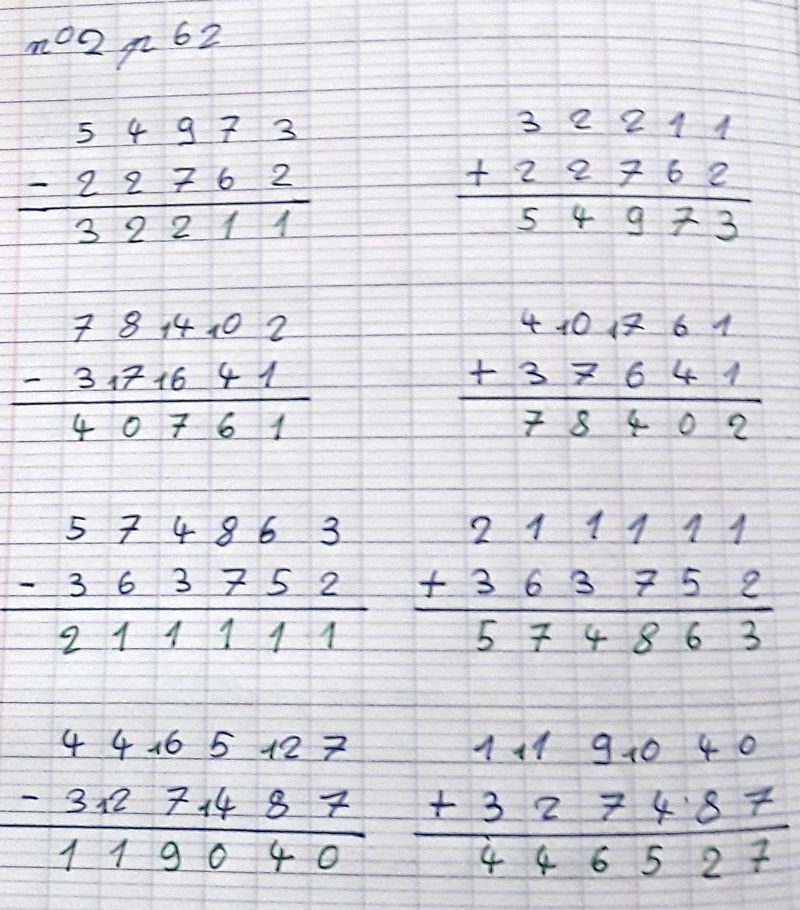 n°2 p 62
5 4 9 7 3
- 2 2 7 6 2
3 2 2 1 1
3 2 2 1 1
+ 2 2 7 6 2
5 4 9 7 3
7 8 14 10 2
- 3 17 16 4 1
4 0 7 6 1
4 10 17 6 1
+ 3 7 6 4 1
7 8 4 0 2
5 7 4 8 6 3
- 3 6 3 7 5 2
2 1 1 1 1 1
2 1 1 1 1 1
+ 3 6 3 7 5 2
5 7 4 8 6 3
4 4 16 5 12 7
- 3 12 7 14 8 7
1 1 9 0 4 0
1 11 9 10 4 0
+ 3 2 7 4 8 7
4 4 6 5 2 7